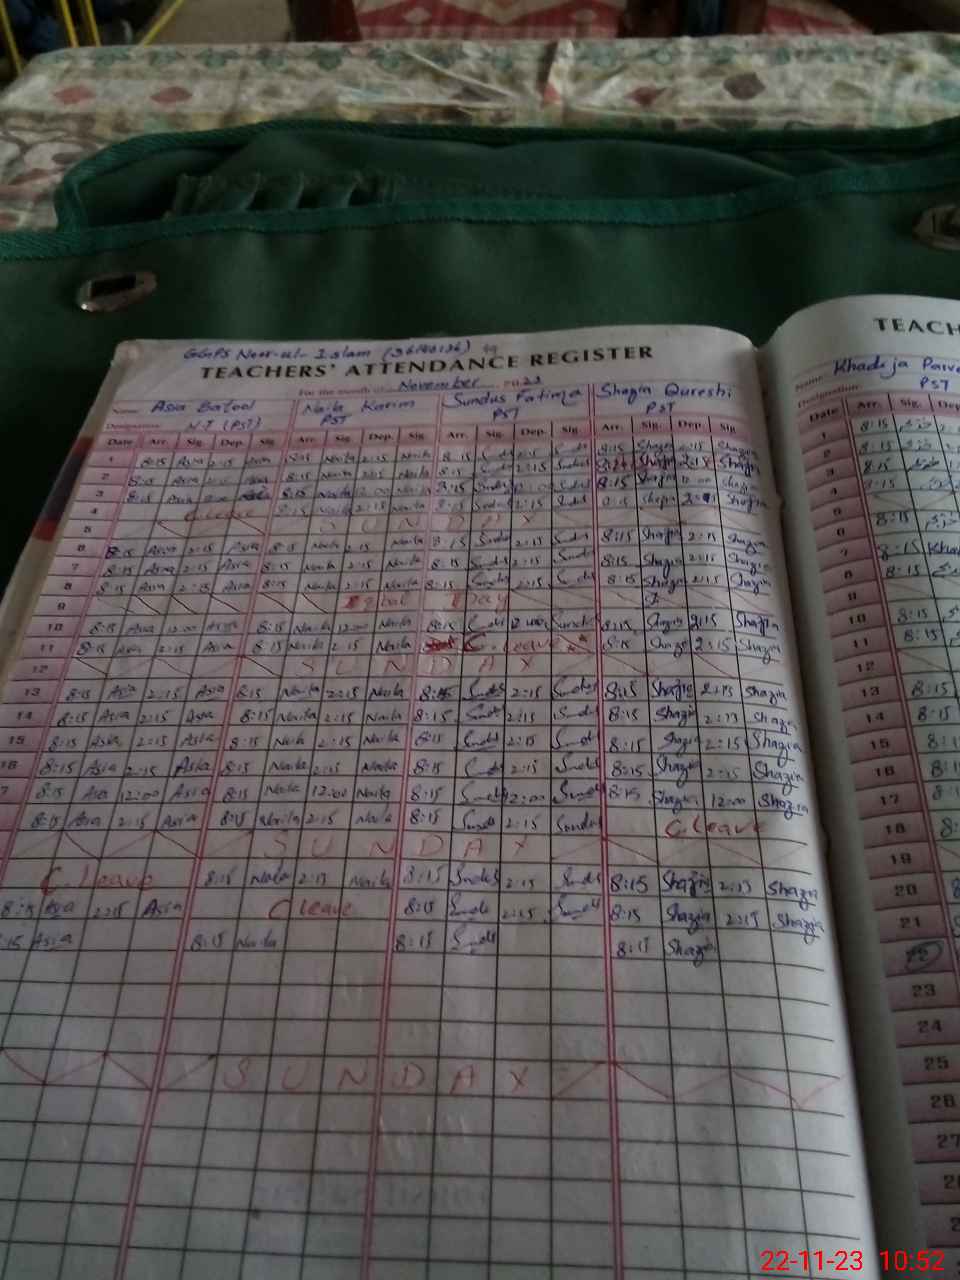 GGPS Noor-ul-Islam
TEACHERS' ATTENDANCE REGISTER
For the month of November 2023
Name Asia Batool Naila Karim Sundus Fatima Shazia Qureshi
Designation N.T (PST) PST PST PST
Date Arr. Sig. Dep. Sig. Arr. Sig. Dep. Sig. Arr. Sig. Dep. Sig. Arr. Sig. Dep. Sig.
1 8:15 Asia 2:15 Asia 8:15 Naila 2:15 Naila 8:15 Sundus 2:15 Sundus 8:15 Shazia 2:15 Shazia
2 8:15 Asia 2:15 Asia 8:15 Naila 2:15 Naila 8:15 Sundus 2:15 Sundus Shazia 2:15 Shazia
3 8:15 Asia 8:15 Naila 12:00 Naila 8:15 Sundus 12:00 Sundus 8:15 Shazia 12:00 Shazia
4 C. leave 8:15 Naila 2:15 Naila 8:15 Sundus 2:15 Sundus 8:15 Shazia Shazia
5 SUNDAY
6 8:15 Asia 2:15 Asia 8:15 Naila 2:15 Naila 8:15 Sundus 2:15 Sundus 8:15 Shazia 2:15 Shazia
7 8:15 Asia 2:15 Asia 8:15 Naila 2:15 Naila 8:15 Sundus 2:15 Sundus 8:15 Shazia 2:15 Shazia
8 8:15 Asia 2:15 Asia 8:15 Naila 2:15 Naila 8:15 Sundus 2:15 Sundus 8:15 Shazia 2:15 Shazia
9 Iqbal Day
10 8:15 Asia 12:00 Asia 8:15 Naila 12:00 Naila 8:15 Sundus Sundus 8:15 Shazia 2:15 Shazia
11 8:15 Asia 2:15 Asia 8:15 Naila 2:15 Naila C. leave 8:15 Shazia 2:15 Shazia
12 SUNDAY
13 8:15 Asia 2:15 Asia 8:15 Naila 2:15 Naila 8:15 Sundus 2:15 Sundus 8:15 Shazia 2:15 Shazia
14 8:15 Asia 2:15 Asia 8:15 Naila 2:15 Naila 8:15 Sundus 2:15 Sundus 8:15 Shazia 2:15 Shazia
15 8:15 Asia 2:15 Asia 8:15 Naila 2:15 Naila 8:15 Sundus 2:15 Sundus 8:15 Shazia 2:15 Shazia
16 8:15 Asia 2:15 Asia 8:15 Naila 2:15 Naila 8:15 Sundus 2:15 Sundus 8:15 Shazia 2:15 Shazia
7 8:15 Asia 12:00 Asia 8:15 Naila 12:00 Naila 8:15 Sundus 12:00 Sundus 8:15 Shazia 12:00 Shazia
8:15 Asia 2:15 Asia 8:15 Naila 2:15 Naila 8:15 Sundus 2:15 Sundus C. leave
SUNDAY
C. leave 8:15 Naila 2:15 Naila 8:15 Sundus 2:15 Sundus 8:15 Shazia 2:15 Shazia
8:15 Asia 2:15 Asia C leave 8:15 Sundus 2:15 Sundus 8:15 Shazia 2:15 Shazia
:15 Asia 8:15 Naila 8:15 Sundus 8:15 Shazia
SUNDAY
TEACH
Name Khadija Parve
Designation PST
Date Arr. Sig. Dep
1 8:15
2 8:15
3 8:15
4 8:15
5
6 8:15
7 8:15 Kha
8 8:15
9
10 8:15
11 8:15
12
13 8:15
14 8:15
15 8:1
16 8:1
17 8:1
18
19
20 8
21
22
23
24
25
26
27
22-11-23 10:52